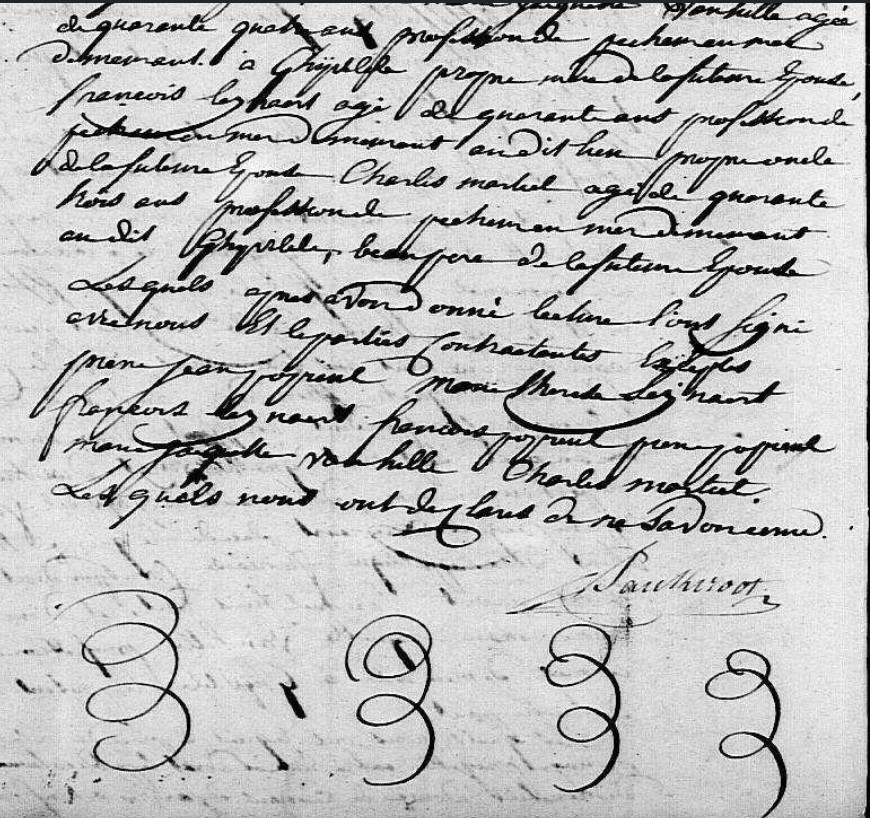 marie jaquette Vanhille agée
de quarante quatre ans profession de pecheur en mer
demeurant à Ghyvelde propre mere de la future Epouse,
françois leynaert agé de quarante ans profession de
pecheur en mer demeurant audit lieu propre oncle
de la future Epouse Charles martel agé de quarante
trois ans profession de pecheur en mer demeurant
audit Ghyvelde, beaupere de la future Epouse
Lesquels apres avoir donné lecture l'ont signé
avec nous Et le parties Contractantes Exceptés
pierre jean popieul marie therese Leynaert
francois leynaert francois popieul pierre popieul
marie jaquette vanhille Charles martel.
Les quels nous ont declaré de ne savoir ecrire.